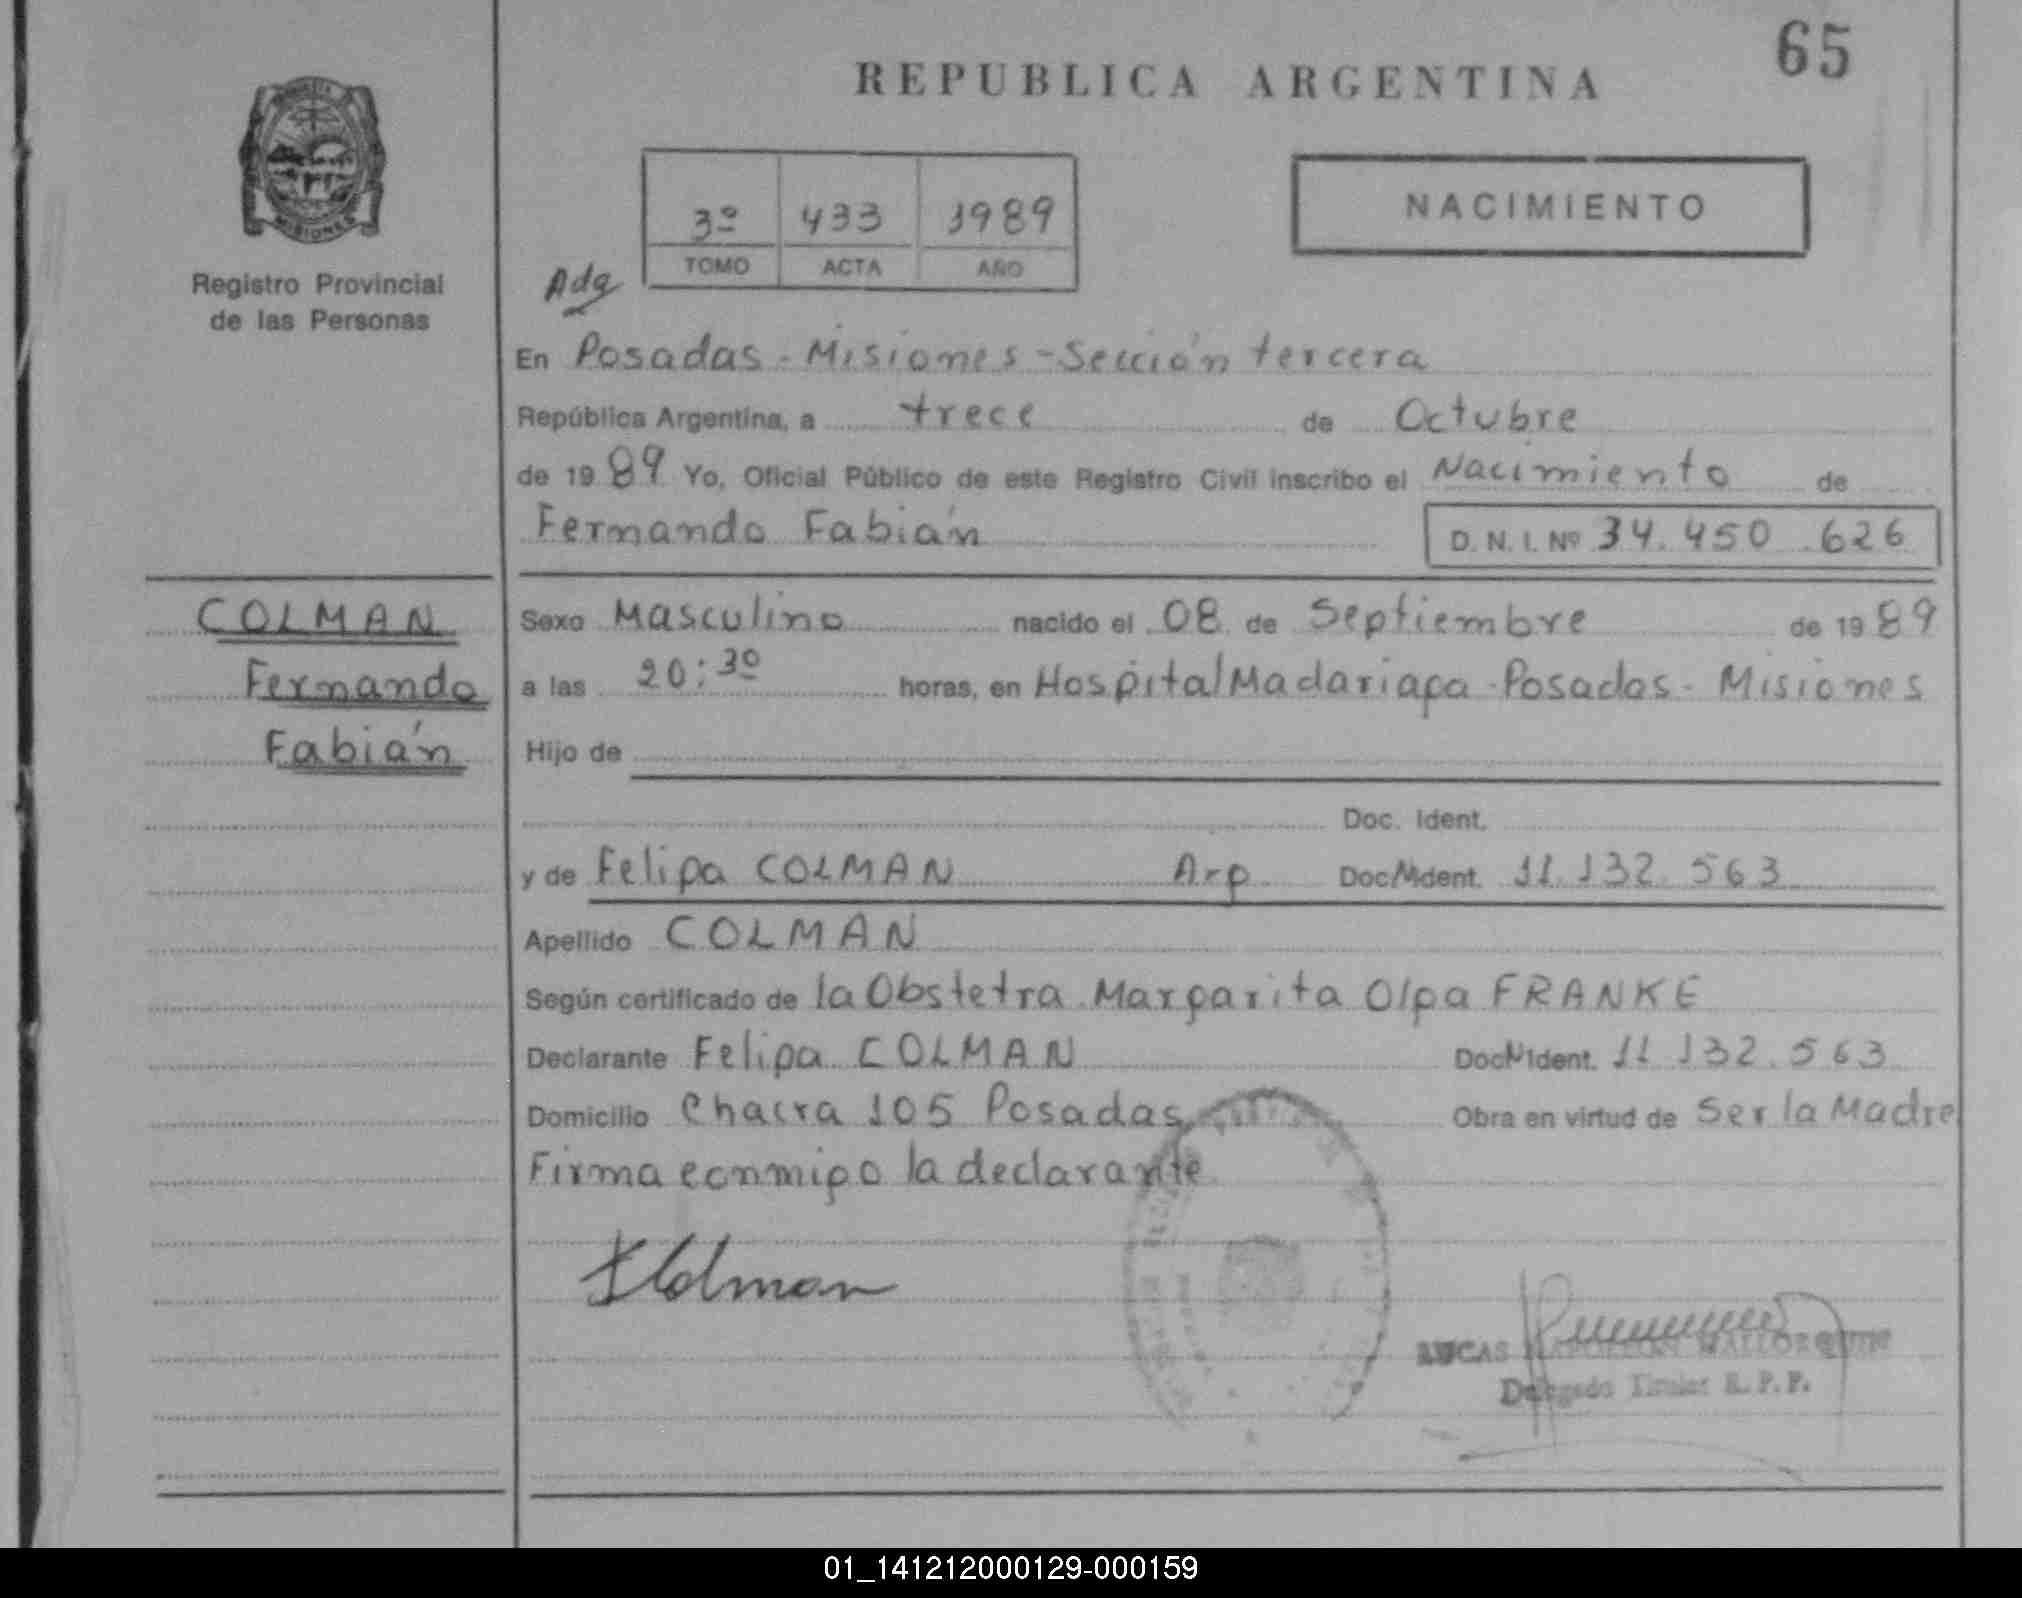 65
REPUBLICA ARGENTINA
3º 433 1989
TOMO ACTA AÑO
NACIMIENTO
Registro Provincial
de las Personas
Adg
En Posadas - Misiones - Sección tercera
República Argentina, a trece de Octubre
de 19 89 Yo, Oficial Público de este Registro Civil inscribo el Nacimiento de
Fernando Fabián D. N. I. Nº 34.450.626
COLMAN
Fernando
Fabián
Sexo Masculino nacido el 08 de Septiembre de 19 89
a las 20:30 horas, en Hospital Madariaga - Posadas - Misiones
Hijo de
Doc. Ident.
y de Felipa COLMAN Arg Doc N Ident. 11.132.563
Apellido COLMAN
Según certificado de la Obstetra Margarita Olga FRANKE
Declarante Felipa COLMAN Doc N Ident. 11.132.563
Domicilio Chacra 105 Posadas Obra en virtud de Ser la Madre
Firma conmigo la declarante
FColman
LUCAS NAPOLEON MALLORQUIN
Delegado Titular R. P. P.
01_141212000129-000159